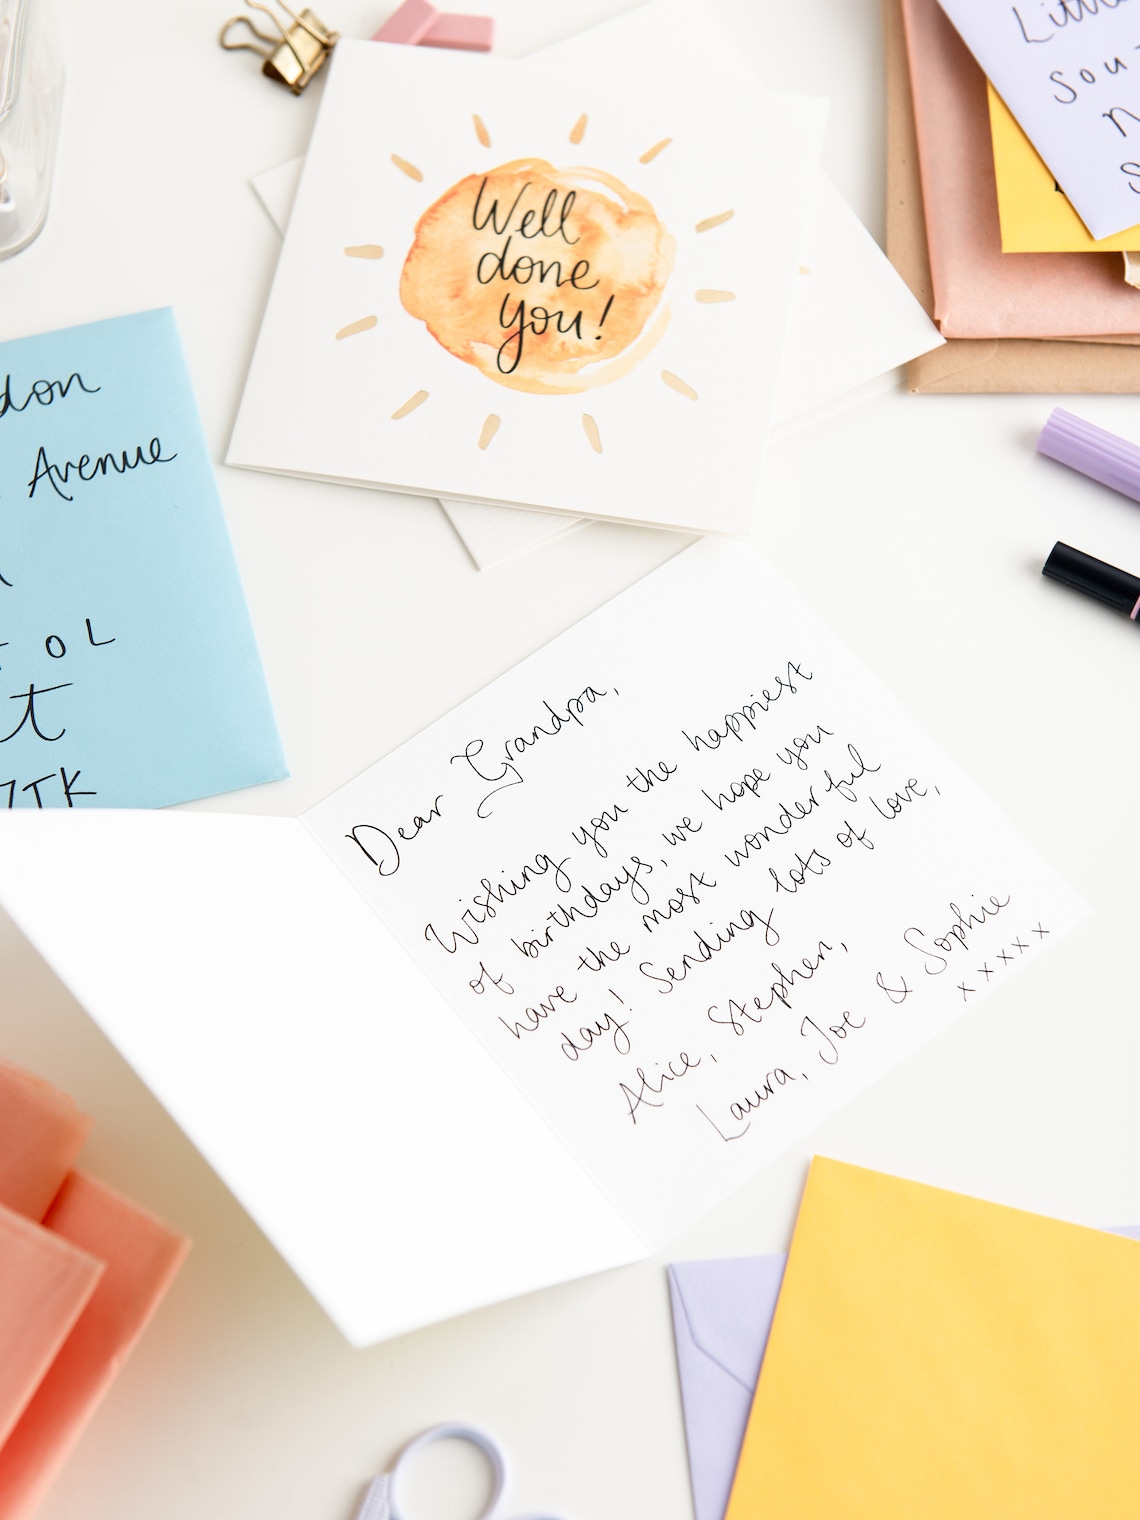 Well
done
you!
Avenue
OL
7TK
Dear Grandpa,
Wishing you the happiest
of birthdays, we hope you
have the most wonderful
day! Sending lots of love,
Alice, Stephen,
Laura, Joe & Sophie
x x x x x